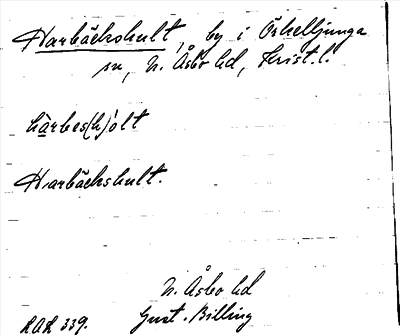 Harbäckshult, by i Örkelljunga
sn, N. Åsbo hd, Krist. l.
härbes(h)ólt
Harbäckshult.
N. Åsbo hd
RAÄ 339. Gust. Billing